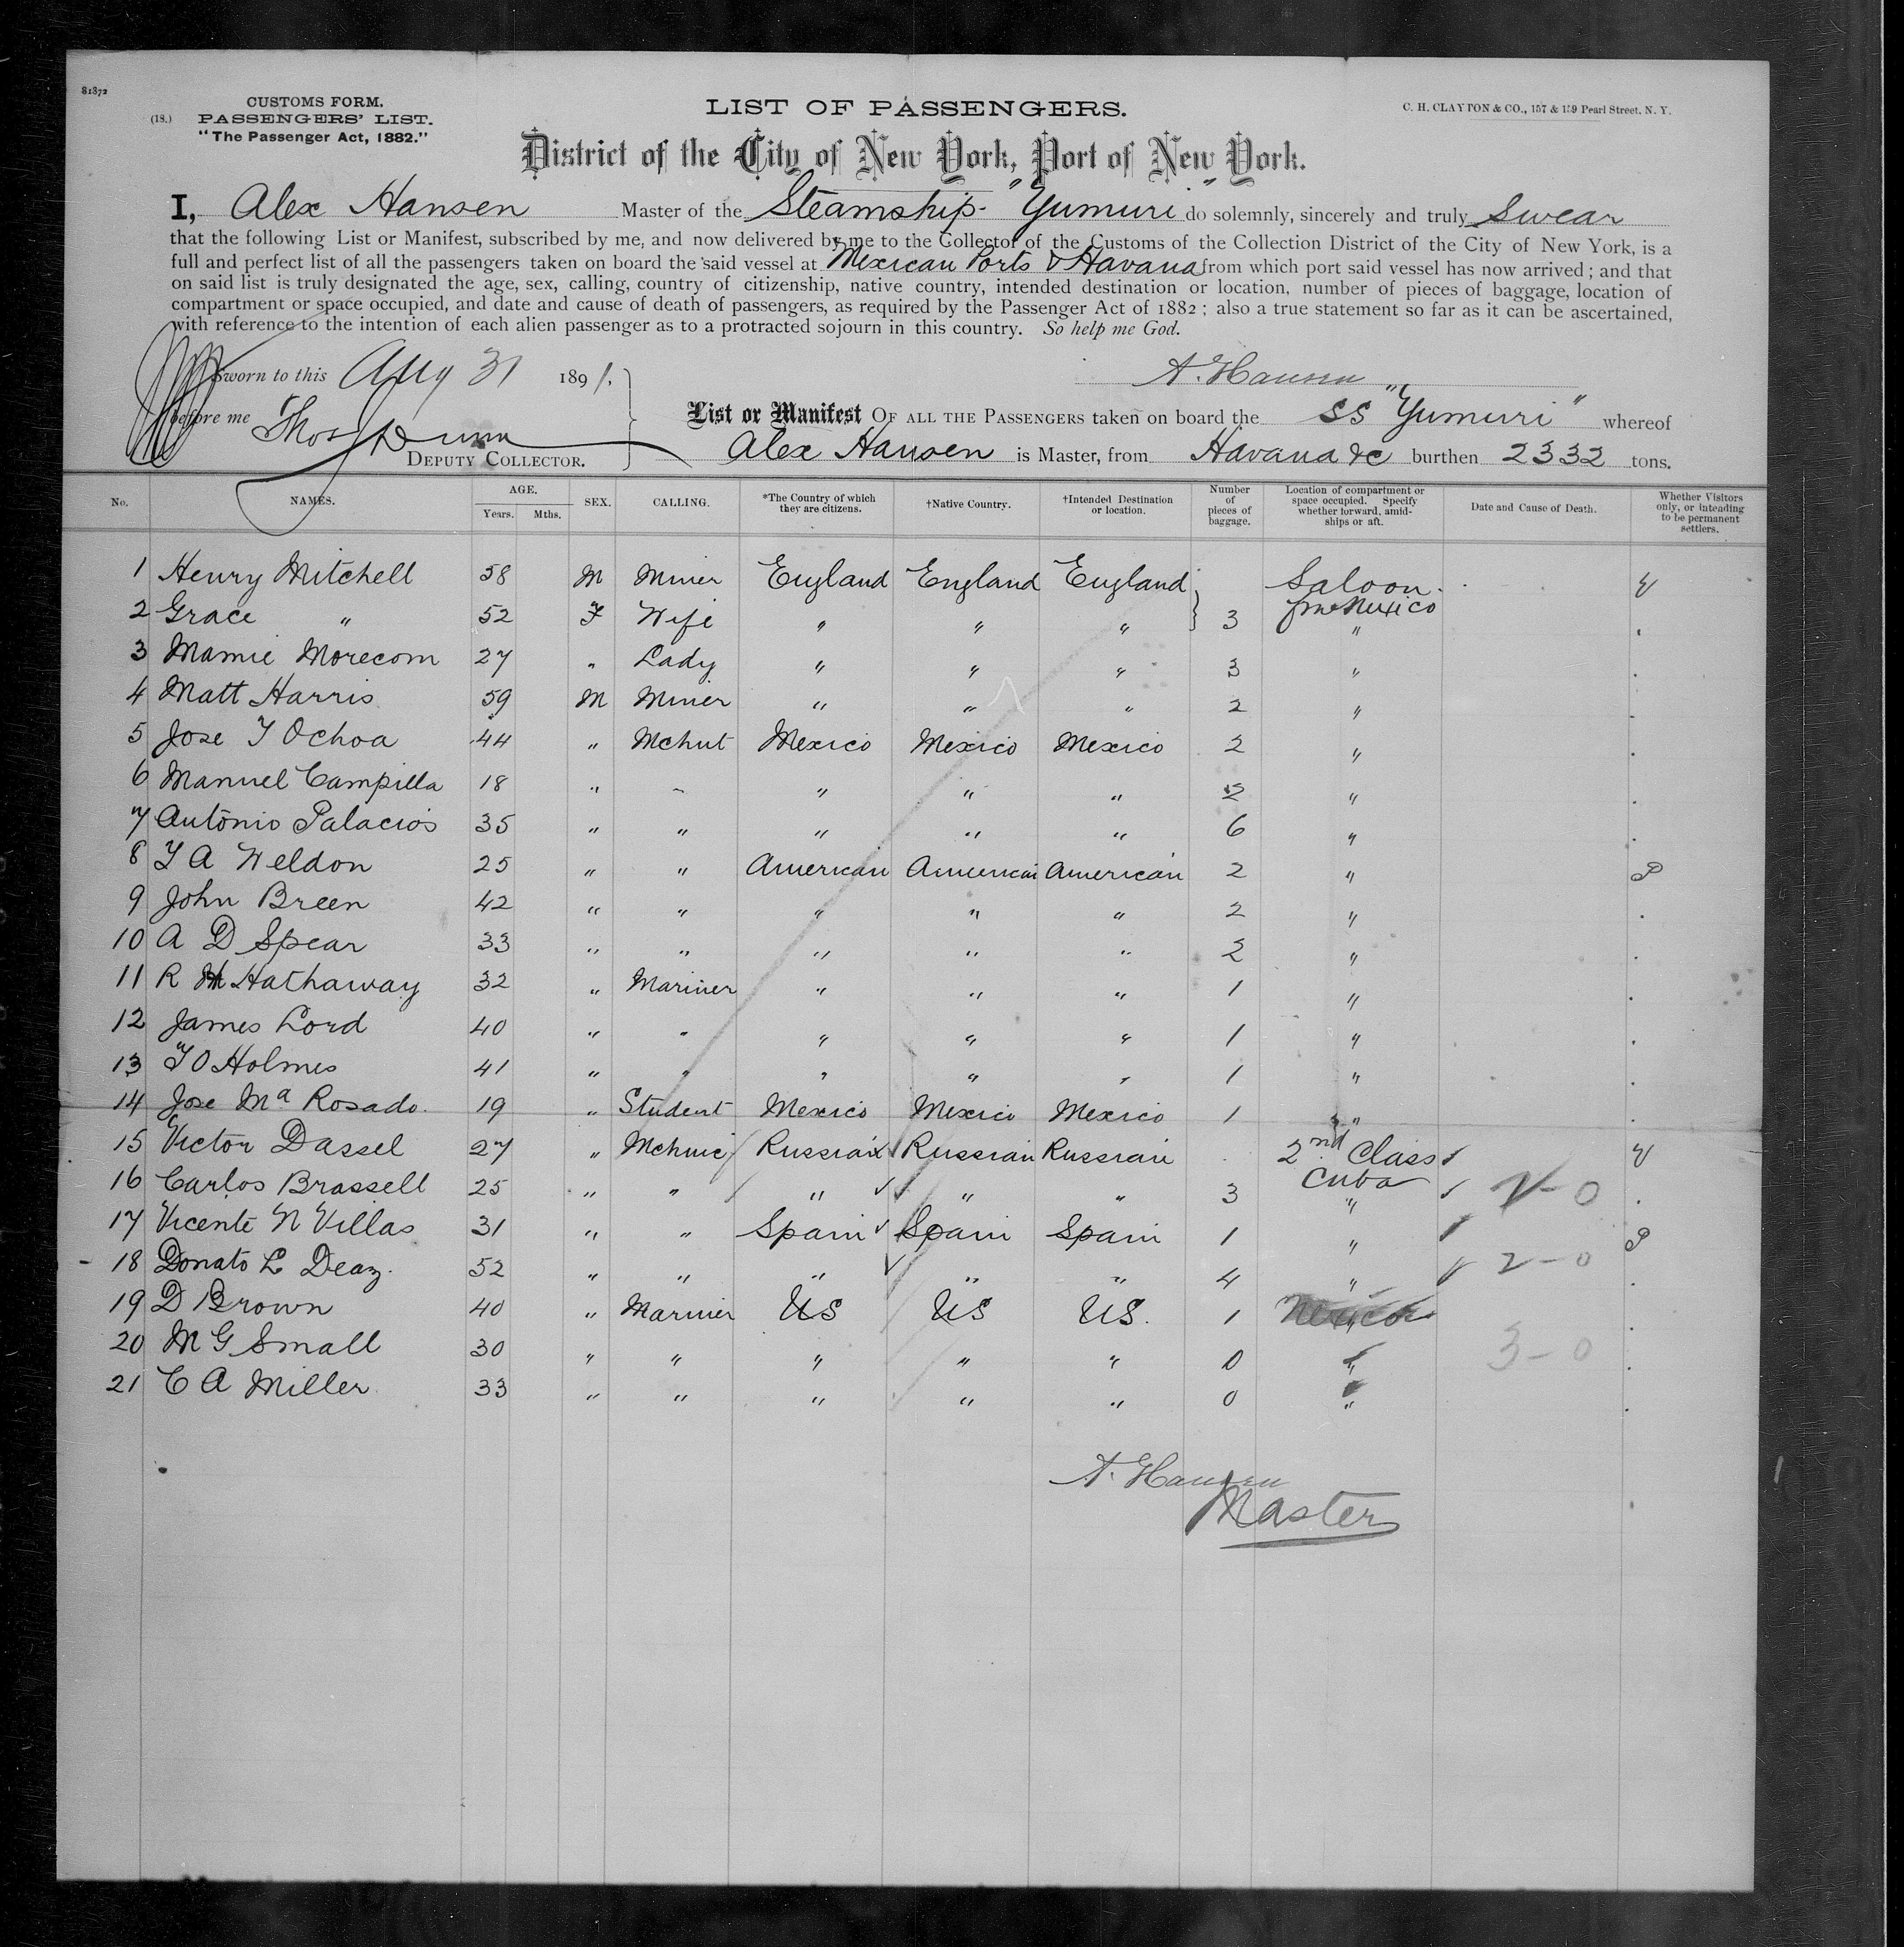 81872
CUSTOMS FORM.
(18.) PASSENGERS' LIST.
"The Passenger Act, 1882."
LIST OF PASSENGERS.
C. H. CLAYTON & CO., 157 & 159 Pearl Street, N. Y.
District of the City of New York, Port of New York.
I, Alex Hansen Master of the Steamship "Yumuri" do solemnly, sincerely and truly Swear
that the following List or Manifest, subscribed by me, and now delivered by me to the Collector of the Customs of the Collection District of the City of New York, is a
full and perfect list of all the passengers taken on board the said vessel at Mexican Ports & Havana from which port said vessel has now arrived; and that
on said list is truly designated the age, sex, calling, country of citizenship, native country, intended destination or location, number of pieces of baggage, location of
compartment or space occupied, and date and cause of death of passengers, as required by the Passenger Act of 1882; also a true statement so far as it can be ascertained,
with reference to the intention of each alien passenger as to a protracted sojourn in this country. So help me God.
Sworn to this Aug 31 1891.
A. Hansen
before me Thos Dunn
DEPUTY COLLECTOR.
List or Manifest OF ALL THE PASSENGERS taken on board the SS "Yumuri" whereof
Alex Hansen is Master, from Havana &c burthen 2332 tons.
No. NAMES. AGE. Years. Mths. SEX. CALLING. *The Country of which they are citizens. †Native Country. †Intended Destination or location. Number of pieces of baggage. Location of compartment or space occupied. Specify whether forward, amidships or aft. Date and Cause of Death. Whether Visitors only, or intending to be permanent settlers.
1 Henry Mitchell 58 M Miner England England England Saloon. V
2 Grace " 52 F Wife " " " 3 from Mexico "
3 Mamie Morecom 27 " Lady " " " 3 "
4 Matt Harris 59 M Miner " " " 2 "
5 Jose Y Ochoa 44 " Mchnt Mexico Mexico Mexico 2 "
6 Manuel Campilla 18 " " " " " 2 "
7 Antonio Palacios 35 " " " " " 6 "
8 Y A Weldon 25 " " American American American 2 " P
9 John Breen 42 " " " " " 2 "
10 A D Spear 33 " " " " " 2 "
11 R H Hathaway 32 " Mariner " " " 1 "
12 James Lord 40 " " " " " 1 "
13 Y O Holmes 41 " " " " " 1 "
14 Jose Ma Rosado. 19 " Student Mexico Mexico Mexico 1 "
15 Victor Dassel 27 " Mchnic Russian Russian Russian 2nd Class V
16 Carlos Brassell 25 " " " " " 3 Cuba " V-0
17 Vicente N Villas 31 " " Spain Spain Spain 1 " P
18 Donato L Deaz. 52 " " " " " 4 " 2-0
19 D Brown 40 " Mariner US US US. 1 Mexico
20 M G Small 30 " " " " " 0 " 3-0
21 C A Miller 33 " " " " " 0 "
A. Hansen
Master